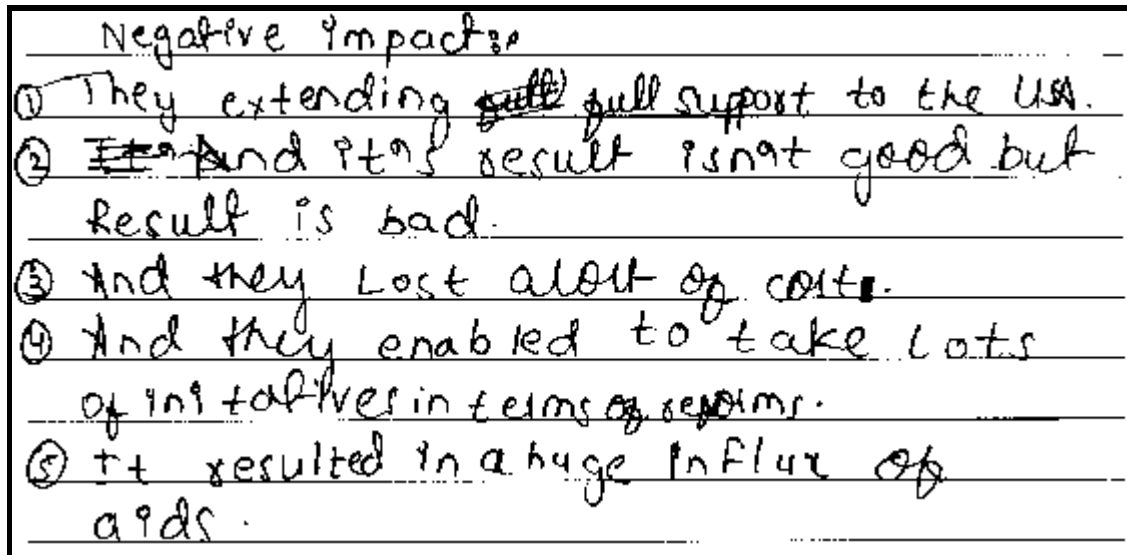 Negative impact:
① They extending full support to the USA.
② And it's result isn't good but
Result is bad.
③ And they Lost alott of cost.
④ And they enabled to take Lots
of initatives in terms of reforms.
⑤ It resulted in a huge influx of
aids.